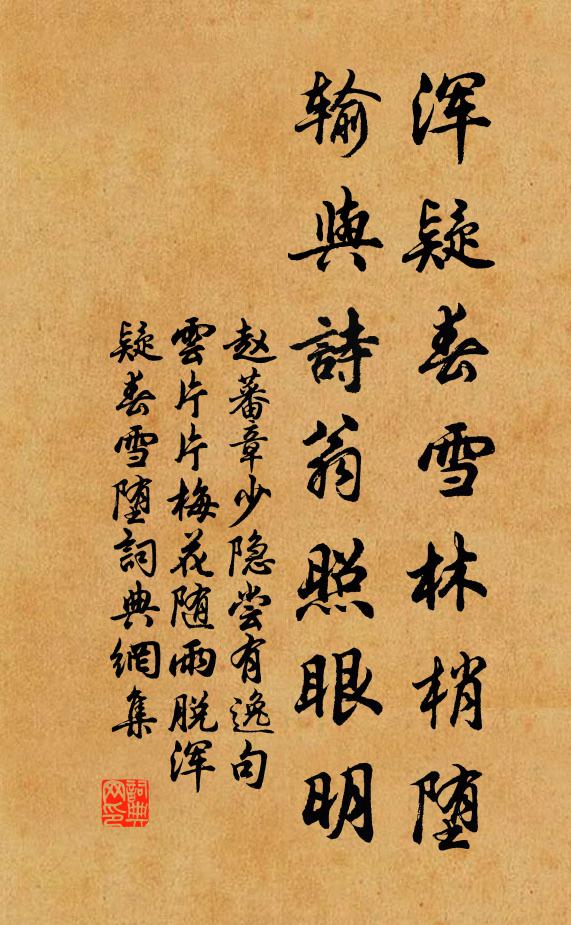 浑疑春雪林梢堕
输与詩翁照眼明
赵蕃章少隐尝有逸句
雲片片梅花随雨脱浑
疑春雪堕詞典網集
詞典
网印